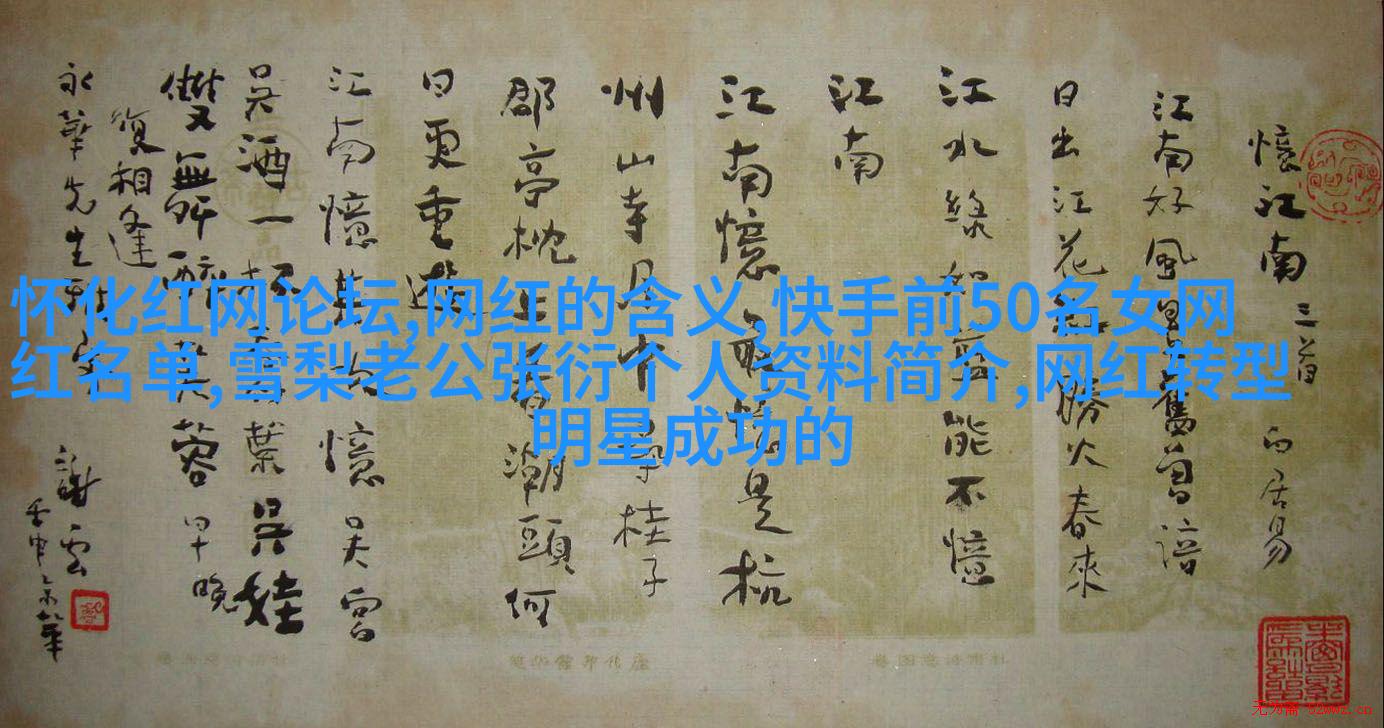 憶江南 三首 白居易
江南好風景舊曾諳
日出江花紅勝火春來
江水綠如藍能不憶
江南
江南憶最憶是杭
州山寺月中尋桂子
郡亭枕上看潮頭何
日更重遊
江南憶其次憶吳宮
吳酒一杯春竹葉吳娃
雙舞醉芙蓉早晚
復相逢
永華先生
謝雲
怀化红网论坛,网红的含义,快手前50名女网
红名单,雪梨老公张衍个人资料简介,网红转型
明星成功的